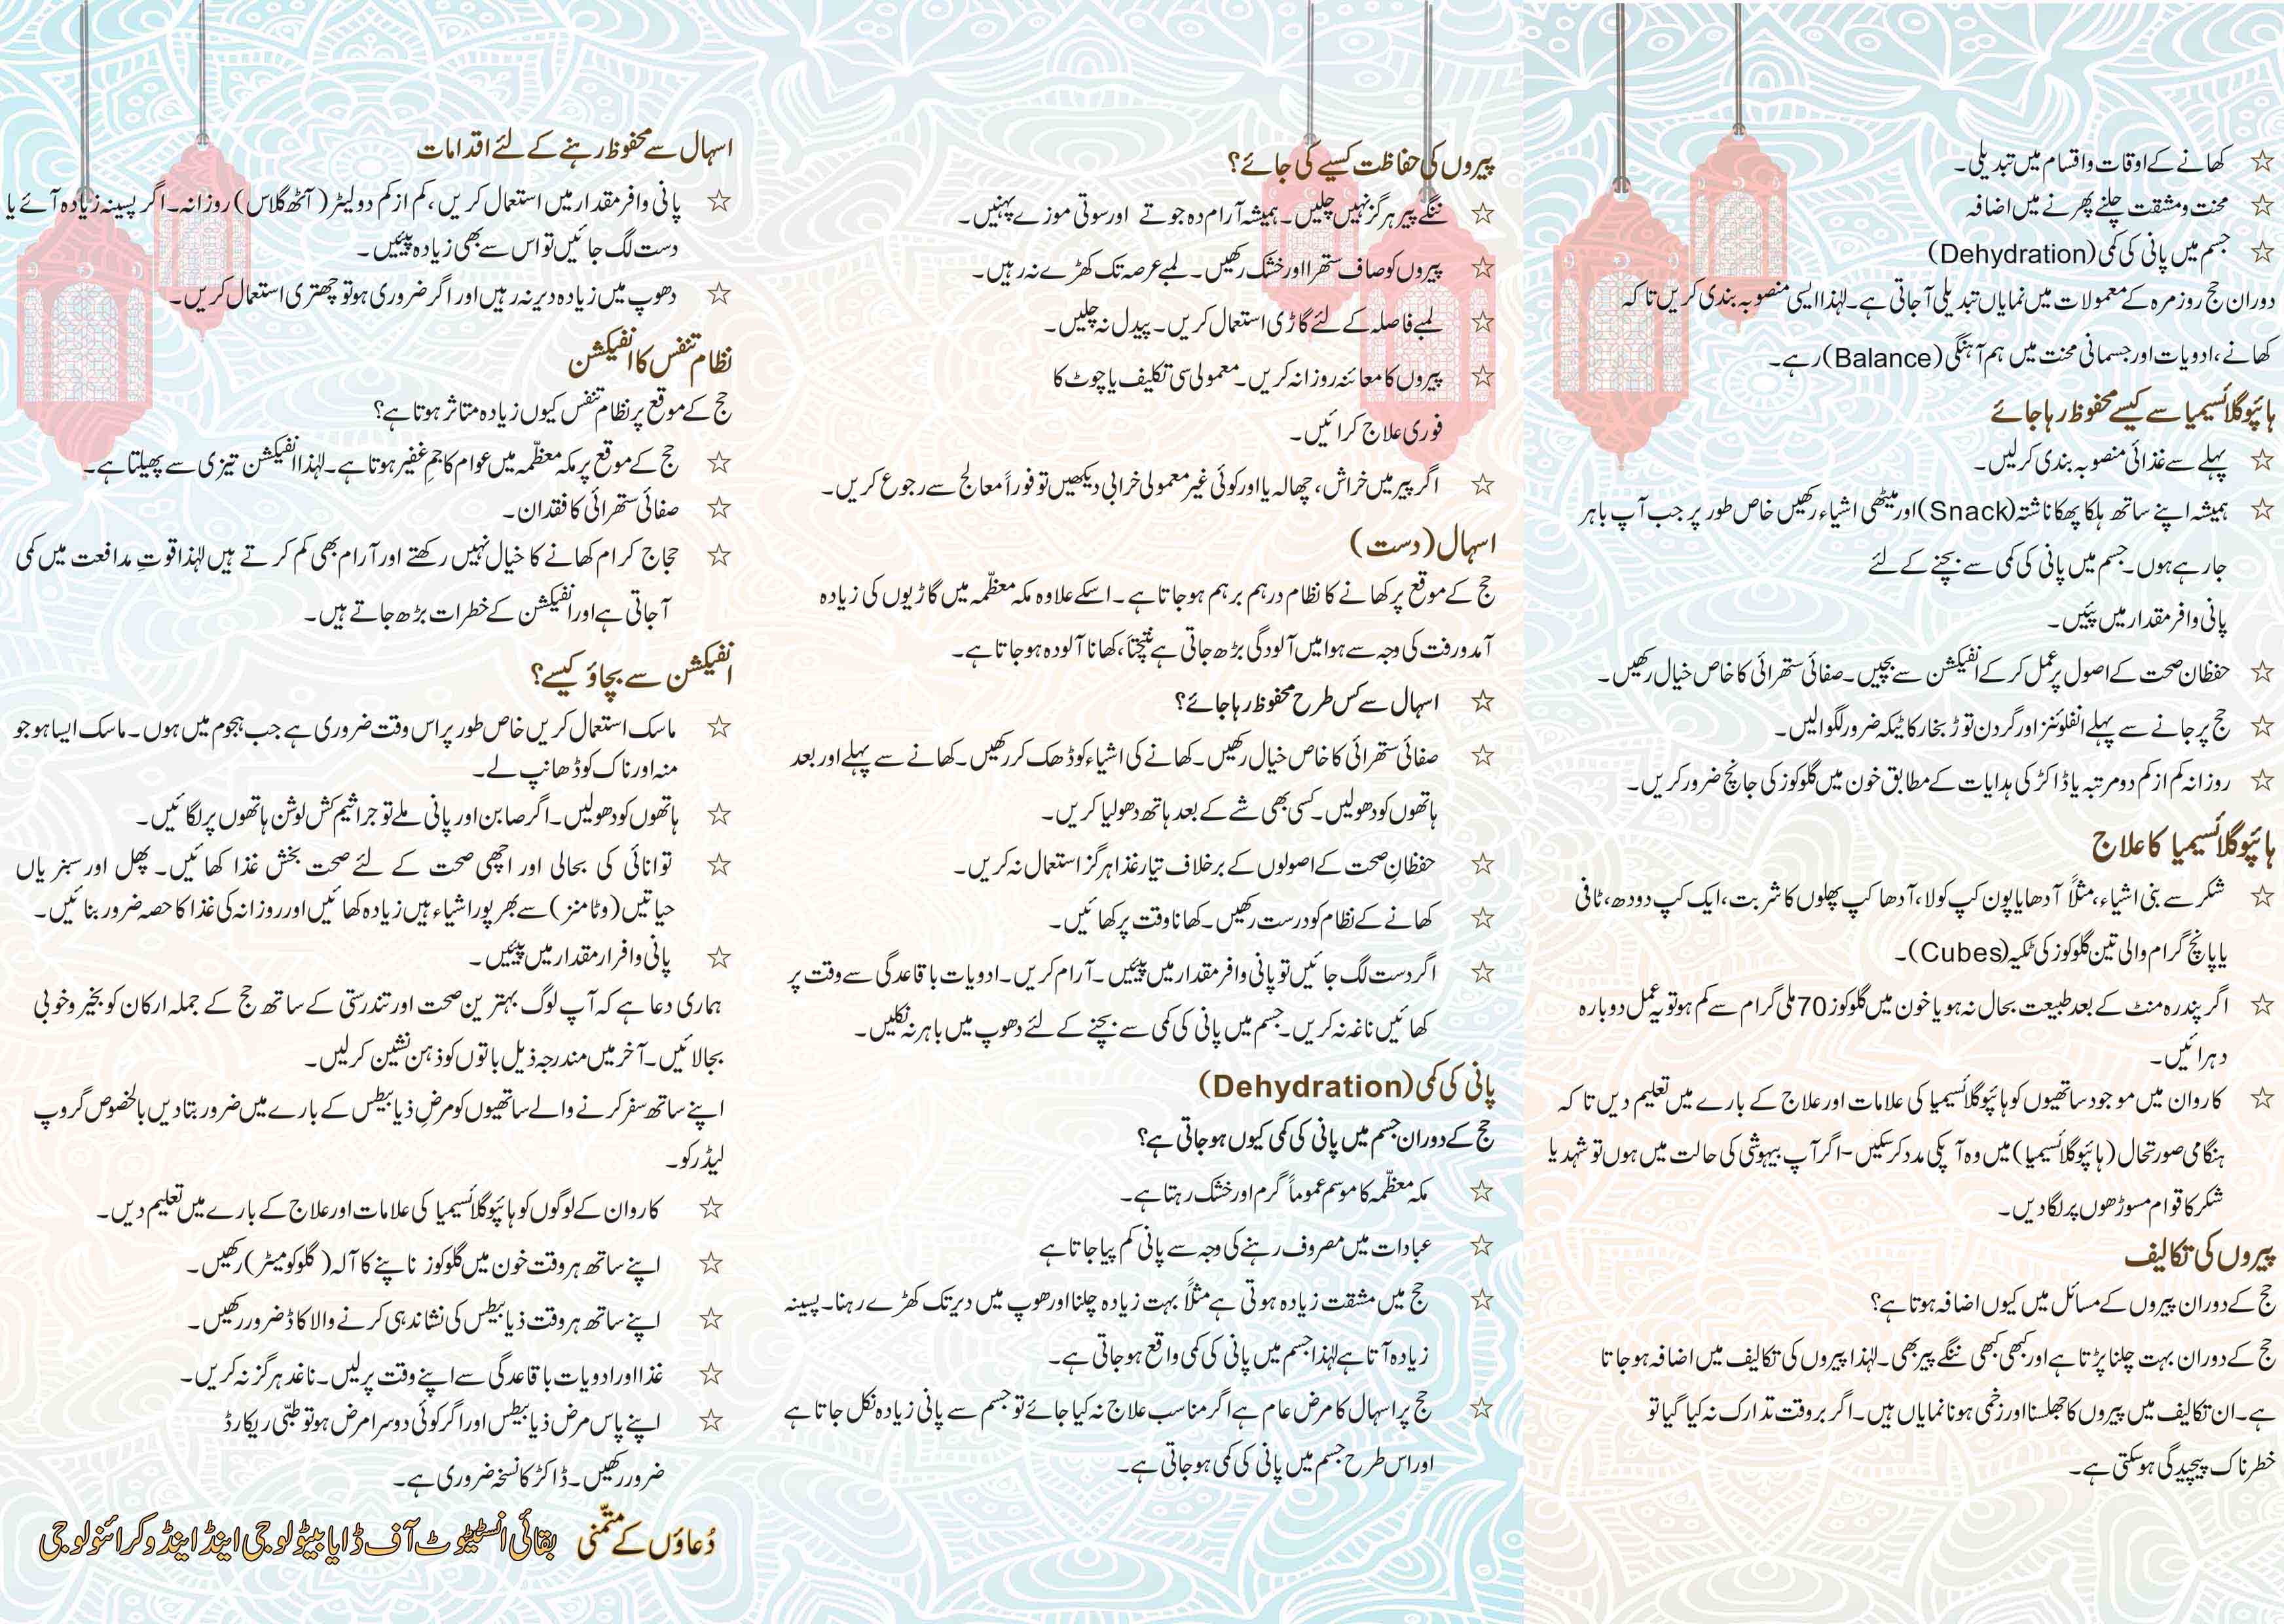 ☆ کھانے کے اوقات و اقسام میں تبدیلی۔
☆ محنت و مشقت چلنے پھرنے میں اضافہ
☆ جسم میں پانی کی کمی (Dehydration)
دوران حج روزمرہ کے معمولات میں نمایاں تبدیلی آجاتی ہے۔ لہٰذا ایسی منصوبہ بندی کریں تا کہ
کھانے، ادویات اور جسمانی محنت میں ہم آہنگی (Balance) رہے۔
ہائپوگلائسیمیا سے کیسے محفوظ رہا جائے
☆ پہلے سے غذائی منصوبہ بندی کرلیں۔
☆ ہمیشہ اپنے ساتھ ہلکا پھلکا ناشتہ (Snack) اور میٹھی اشیاء رکھیں خاص طور پر جب آپ باہر
جارہے ہوں۔ جسم میں پانی کی کمی سے بچنے کے لئے
پانی وافر مقدار میں پئیں۔
☆ حفظان صحت کے اصول پر عمل کر کے انفیکشن سے بچیں۔ صفائی ستھرائی کا خاص خیال رکھیں۔
☆ حج پر جانے سے پہلے انفلوئنز اور گردن توڑ بخار کا ٹیکہ ضرور لگوالیں۔
☆ روزانہ کم از کم دو مرتبہ یا ڈاکڑ کی ہدایات کے مطابق خون میں گلوکوز کی جانچ ضرور کریں۔
ہائپوگلائسیمیا کا علاج
☆ شکر سے بنی اشیاء، مثلاً آدھا یا پون کپ کولا، آدھا کپ پھلوں کا شربت، ایک کپ دودھ، ٹافی
یا پانچ گرام والی تین گلوکوز کی ٹکیہ (Cubes)۔
☆ اگر پندرہ منٹ کے بعد طبیعت بحال نہ ہو یا خون میں گلوکوز 70 ملی گرام سے کم ہو تو یہ عمل دوبارہ
دہرائیں۔
☆ کاروان میں موجود ساتھیوں کو ہائپوگلائسیمیا کی علامات اور علاج کے بارے میں تعلیم دیں تا کہ
ہنگامی صورتحال (ہائپوگلائسیمیا) میں وہ آپکی مدد کرسکیں۔ اگر آپ بیہوشی کی حالت میں ہوں تو شہد یا
شکر کا قوام مسوڑھوں پر لگا دیں۔
پیروں کی تکالیف
حج کے دوران پیروں کے مسائل میں کیوں اضافہ ہوتا ہے؟
حج کے دوران بہت چلنا پڑتا ہے اور کبھی کبھی ننگے پیر بھی۔ لہٰذا پیروں کی تکالیف میں اضافہ ہوجاتا
ہے۔ ان تکالیف میں پیروں کا جھلسنا اور زخمی ہونا نمایاں ہیں۔ اگر بروقت تدارک نہ کیا گیا تو
خطرناک پیچیدگی ہوسکتی ہے۔
پیروں کی حفاظت کیسے کی جائے؟
☆ ننگے پیر ہرگز نہیں چلیں۔ ہمیشہ آرام دہ جوتے اور سوتی موزے پہنیں۔
☆ پیروں کو صاف ستھرا اور خشک رکھیں۔ لمبے عرصہ تک کھڑے نہ رہیں۔
☆ لمبے فاصلہ کے لئے گاڑی استعمال کریں۔ پیدل نہ چلیں۔
☆ پیروں کا معائنہ روزانہ کریں۔ معمولی سی تکلیف یا چوٹ کا
فوری علاج کرائیں۔
☆ اگر پیر میں خراش، چھالہ یا اور کوئی غیر معمولی خرابی دیکھیں تو فوراً معالج سے رجوع کریں۔
اسہال (دست)
حج کے موقع پر کھانے کا نظام درہم برہم ہوجاتا ہے۔ اسکے علاوہ مکہ معظّمہ میں گاڑیوں کی زیادہ
آمدورفت کی وجہ سے ہوا میں آلودگی بڑھ جاتی ہے نتیجتاً، کھانا آلودہ ہوجاتا ہے۔
☆ اسہال سے کس طرح محفوظ رہا جائے؟
☆ صفائی ستھرائی کا خاص خیال رکھیں۔ کھانے کی اشیاء کو ڈھک کر رکھیں۔ کھانے سے پہلے اور بعد
ہاتھوں کو دھولیں۔ کسی بھی شے کے بعد ہاتھ دھولیا کریں۔
☆ حفظانِ صحت کے اصولوں کے برخلاف تیار غذا ہرگز استعمال نہ کریں۔
☆ کھانے کے نظام کو درست رکھیں۔ کھانا وقت پر کھائیں۔
☆ اگر دست لگ جائیں تو پانی وافر مقدار میں پیئیں۔ آرام کریں۔ ادویات باقاعدگی سے وقت پر
کھائیں ناغہ نہ کریں۔ جسم میں پانی کی کمی سے بچنے کے لئے دھوپ میں باہر نہ نکلیں۔
پانی کی کمی (Dehydration)
حج کے دوران جسم میں پانی کی کمی کیوں ہوجاتی ہے؟
☆ مکہ معظّمہ کا موسم عموماً گرم اور خشک رہتا ہے۔
☆ عبادات میں مصروف رہنے کی وجہ سے پانی کم پیا جاتا ہے
☆ حج میں مشقت زیادہ ہوتی ہے مثلاً بہت زیادہ چلنا اور دھوپ میں دیر تک کھڑے رہنا۔ پسینہ
زیادہ آتا ہے لہٰذا جسم میں پانی کی کمی واقع ہوجاتی ہے۔
☆ حج پر اسہال کا مرض عام ہے اگر مناسب علاج نہ کیا جائے تو جسم سے پانی زیادہ نکل جاتا ہے
اور اس طرح جسم میں پانی کی کمی ہوجاتی ہے۔
اسہال سے محفوظ رہنے کے لئے اقدامات
☆ پانی وافر مقدار میں استعمال کریں، کم از کم دو لیٹر (آٹھ گلاس) روزانہ۔ اگر پسینہ زیادہ آئے یا
دست لگ جائیں تو اس سے بھی زیادہ پیئیں۔
☆ دھوپ میں زیادہ دیر نہ رہیں اور اگر ضروری ہو تو چھتری استعمال کریں۔
نظام تنفس کا انفیکشن
حج کے موقع پر نظام تنفس کیوں زیادہ متاثر ہوتا ہے؟
☆ حج کے موقع پر مکہ معظّمہ میں عوام کا جمِ غفیر ہوتا ہے۔ لہٰذا انفیکشن تیزی سے پھیلتا ہے۔
☆ صفائی ستھرائی کا فقدان۔
☆ حجاج کرام کھانے کا خیال نہیں رکھتے اور آرام بھی کم کرتے ہیں لہٰذا قوتِ مدافعت میں کمی
آجاتی ہے اور انفیکشن کے خطرات بڑھ جاتے ہیں۔
انفیکشن سے بچاؤ کیسے؟
☆ ماسک استعمال کریں خاص طور پر اس وقت ضروری ہے جب ہجوم میں ہوں۔ ماسک ایسا ہو جو
منہ اور ناک کو ڈھانپ لے۔
☆ ہاتھوں کو دھولیں۔ اگر صابن اور پانی ملے تو جراثیم کش لوشن ہاتھوں پر لگائیں۔
☆ توانائی کی بحالی اور اچھی صحت کے لئے صحت بخش غذا کھائیں۔ پھل اور سبزیاں
حیاتیں (وٹامنز) سے بھرپور اشیاء ہیں زیادہ کھائیں اور روزانہ کی غذا کا حصہ ضرور بنائیں۔
☆ پانی وافرار مقدار میں پیئیں۔
ہماری دعا ہے کہ آپ لوگ بہترین صحت اور تندرستی کے ساتھ حج کے جملہ ارکان کو بخیر وخوبی
بجالائیں۔ آخر میں مندرجہ ذیل باتوں کو ذہن نشین کرلیں۔
اپنے ساتھ سفر کرنے والے ساتھیوں کو مرضِ ذیابیطس کے بارے میں ضرور بتادیں بالخصوص گروپ
لیڈر کو۔
☆ کاروان کے لوگوں کو ہائپوگلائسیمیا کی علامات اور علاج کے بارے میں تعلیم دیں۔
☆ اپنے ساتھ ہر وقت خون میں گلوکوز ناپنے کا آلہ (گلوکومیٹر) رکھیں۔
☆ اپنے ساتھ ہر وقت ذیابیطس کی نشاندہی کرنے والا کاڈ ضرور رکھیں۔
☆ غذا اور ادویات باقاعدگی سے اپنے وقت پر لیں۔ ناغہ ہرگز نہ کریں۔
☆ اپنے پاس مرض ذیابیطس اور اگر کوئی دوسرا مرض ہو تو طبّی ریکارڈ
ضرور رکھیں۔ ڈاکڑ کا نسخہ ضروری ہے۔
دُعاؤں کے متمّنی بقائی انسٹیٹیوٹ آف ڈایابیٹولوجی اینڈ اینڈوکرائنولوجی